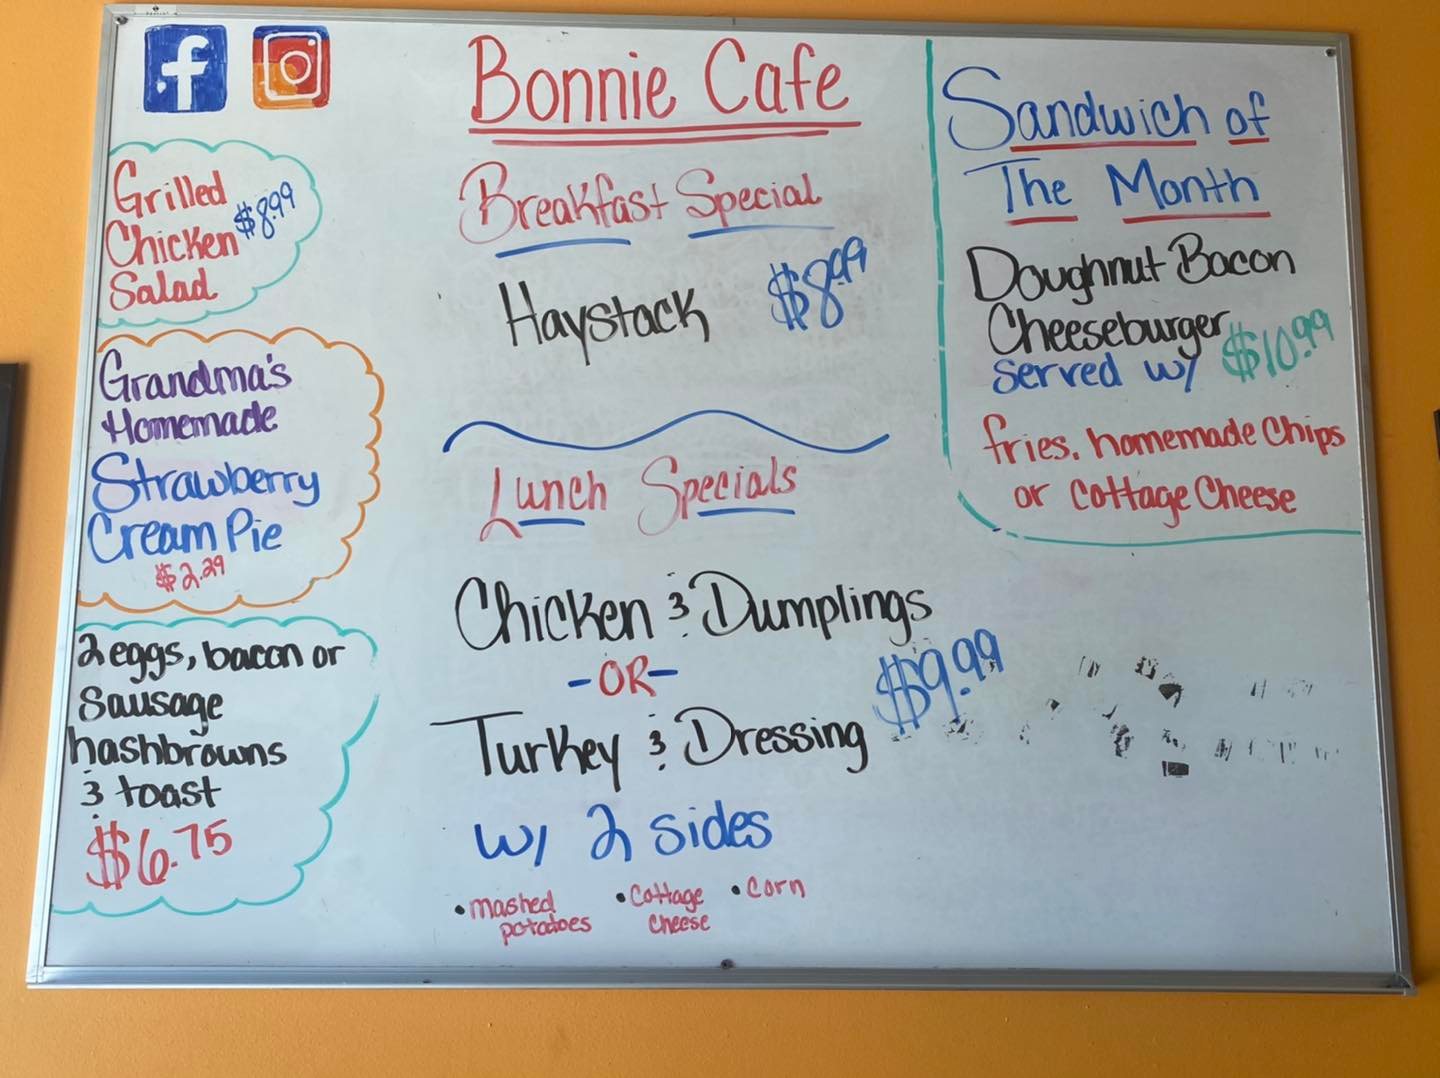 Bonnie Cafe
Grilled
Chicken
Salad
$8.99
Grandma's
Homemade
Strawberry
Cream Pie
$2.29
2 eggs, bacon or
Sausage
hashbrowns
& toast
$6.75
Breakfast Special
Haystack $8.99
Lunch Specials
Chicken & Dumplings
-OR-
$9.99
Turkey & Dressing
w/ 2 sides
• mashed
potatoes
• Cottage
Cheese
• Corn
Sandwich of
The Month
Doughnut Bacon
Cheeseburger
served w/ $10.99
fries, homemade Chips
or Cottage Cheese